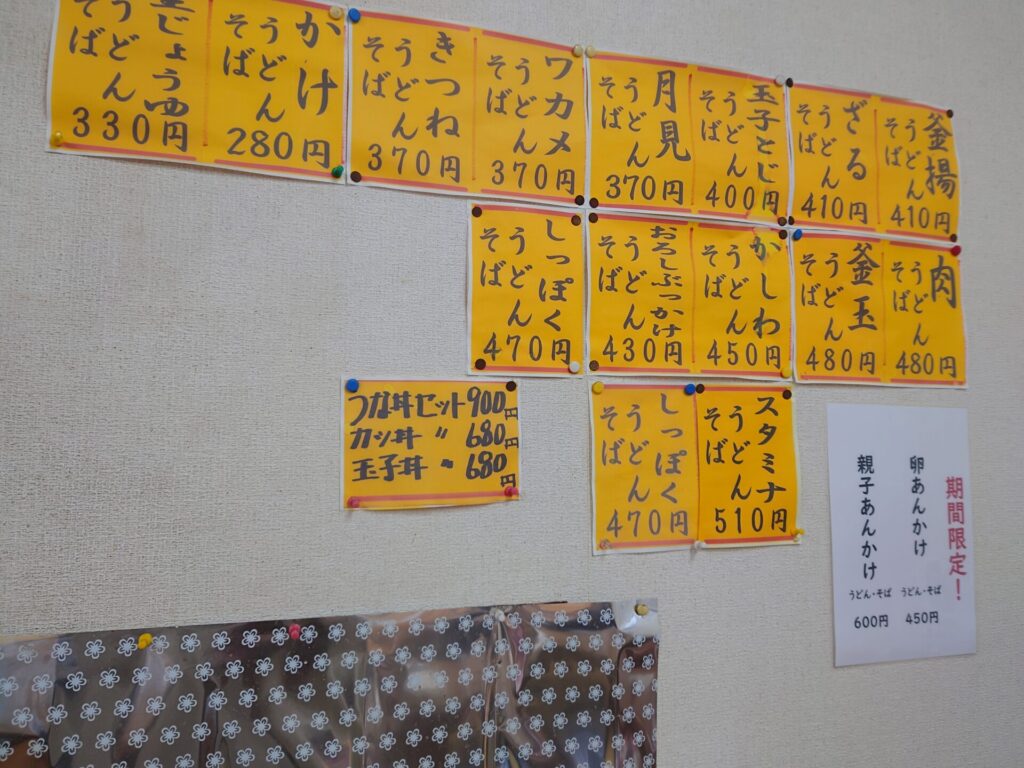 釜揚
うどん
そば
410円
ざる
うどん
そば
410円
玉子とじ
うどん
そば
400円
月見
うどん
そば
370円
ワカメ
うどん
そば
370円
きつね
うどん
そば
370円
かけ
うどん
そば
280円
じょうゆ
うどん
そば
330円
肉
うどん
そば
480円
釜玉
うどん
そば
480円
かしわ
うどん
そば
450円
おろしぶっかけ
うどん
そば
430円
しっぽく
うどん
そば
470円
スタミナ
うどん
そば
510円
しっぽく
うどん
そば
470円
うな丼セット900円
カツ丼 〃 680円
玉子丼 〃 680円
期間限定!
卵あんかけ
うどん・そば
450円
親子あんかけ
うどん・そば
600円